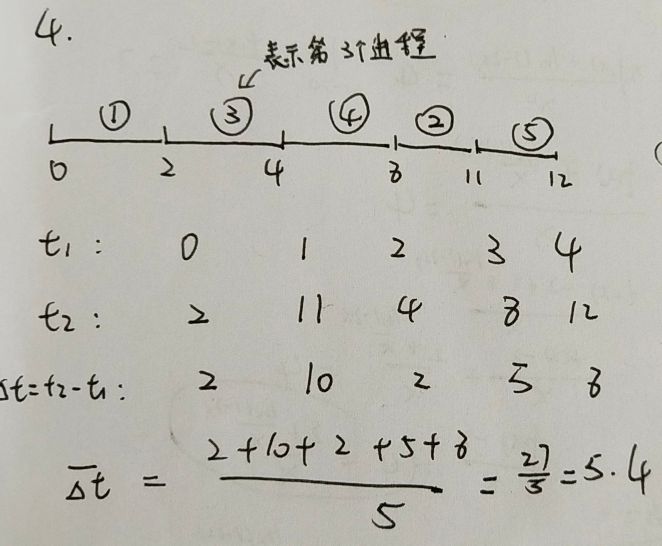 4.
表示第3个进程
① ③ ④ ② ⑤
0 2 4 8 11 12
t₁: 0 1 2 3 4
t₂: 2 11 4 8 12
Δt=t₂-t₁: 2 10 2 5 8
Δt̅ = (2+10+2+5+8)/5 = 27/5 = 5.4